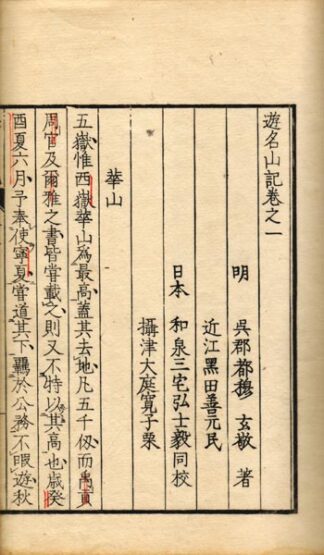 遊名山記卷之一
明　吳郡都穆　玄敬　著
近江黑田善元民
日本　和泉三宅弘士毅同校
攝津大庭寬子栗
華山
五嶽惟西嶽華山為最高蓋其去地凡五千仭而禹貢
周官及爾雅之書皆嘗載之則又不特以其高也歲癸
酉夏六月予奉使寧夏嘗道其下羈於公務不暇遊秋